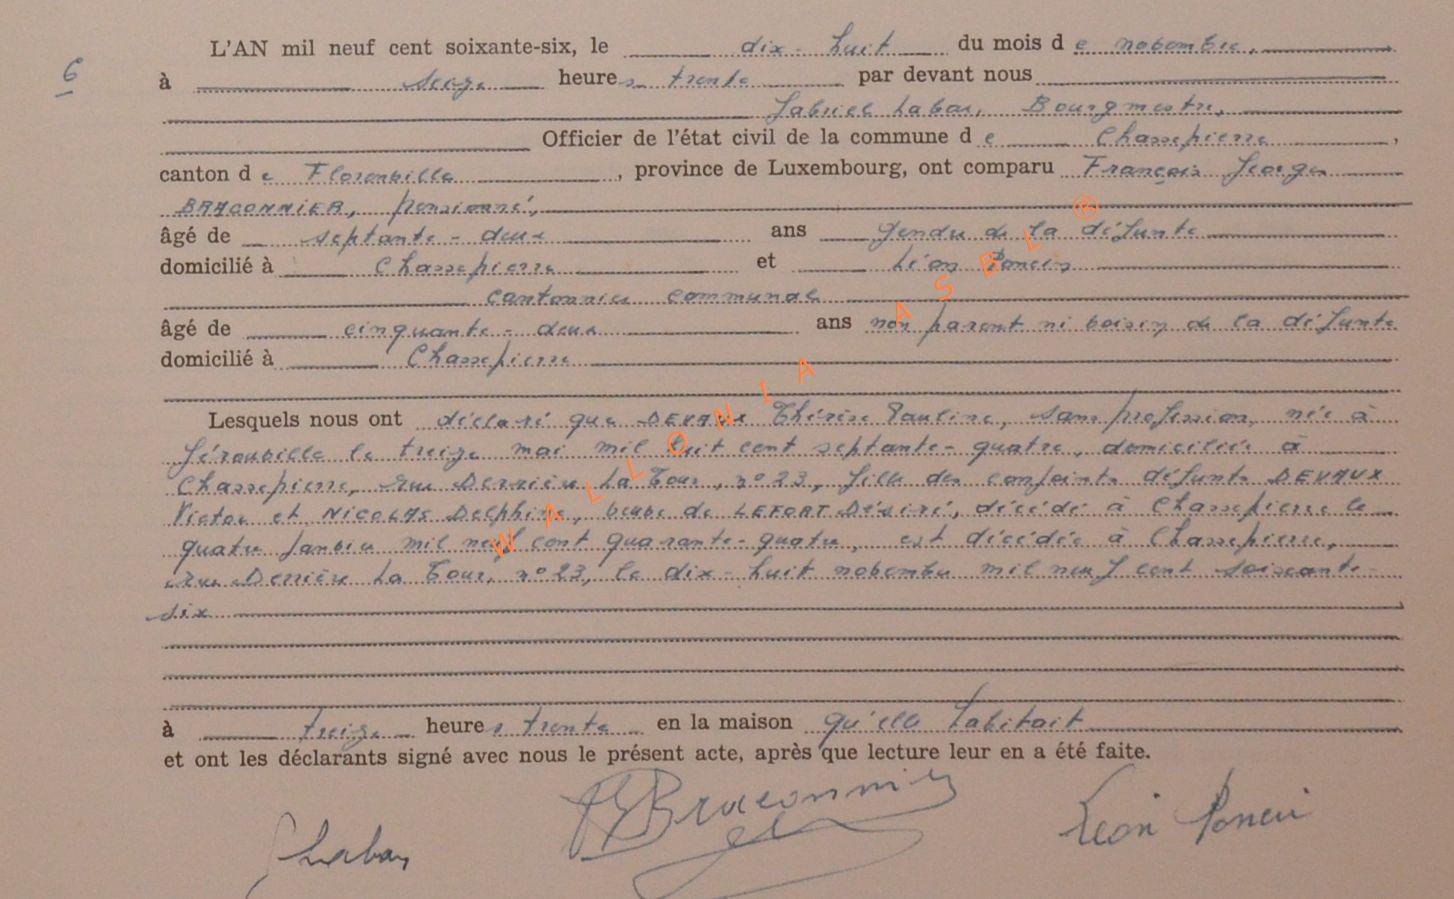 6
L'AN mil neuf cent soixante-six, le dix-huit du mois d e novembre,
à seize heure s trente par devant nous
Gabriel Labar, Bourgmestre,
Officier de l'état civil de la commune d e Chassepierre,
canton d e Florenville, province de Luxembourg, ont comparu François Georges
BRACONNIER, pensionné,
âgé de septante-deux ans gendre de la défunte
domicilié à Chassepierre et Léon Poncin
cantonnier communal
âgé de cinquante-deux ans non parent ni voisin de la défunte
domicilié à Chassepierre
Lesquels nous ont déclaré que DEVAUX Thérèse Pauline, sans profession, née à
Gérouville le treize mai mil huit cent septante-quatre, domiciliée à
Chassepierre, rue Derrière La Tour, n°23, fille des conjoints défunts DEVAUX
Victor et NICOLAS Delphine, veuve de LEFORT Désiré, décédé à Chassepierre le
quatre janvier mil neuf cent quarante-quatre, est décédée à Chassepierre,
rue Derrière La Tour, n°23, le dix-huit novembre mil neuf cent soixante-
six
à treize heure s trente en la maison qu'elle habitait
et ont les déclarants signé avec nous le présent acte, après que lecture leur en a été faite.
GLabar Braconnier Léon Poncin
WALLONIA ASBL ®